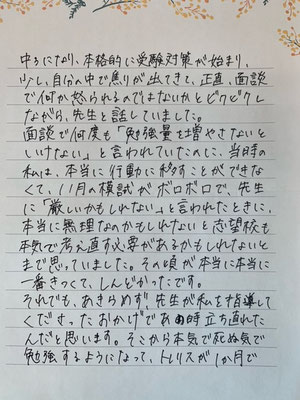 中3になり、本格的に受験対策が始まり、
少し、自分の中で焦りが出てきて、正直、面談
で何か怒られるのではないかとビクビクし
ながら、先生と話していました。
面談で何度も「勉強量を増やさないと
いけない」と言われていたのに、当時の
私は、本当に行動に移すことができな
くて、11月の模試がボロボロで、先生
に「厳しいかもしれない」と言われたときに、
本当に無理なのかもしれないと志望校も
本気で考え直す必要があるかもしれないと
まで思っていました。その頃が本当に本当に
一番きつくて、しんどかったです。
それでも、あきらめず先生が私を指導して
くださったおかげであの時立ち直れた
んだと思います。そこから本気で死ぬ気で
勉強するようになって、トレリスが1か月で